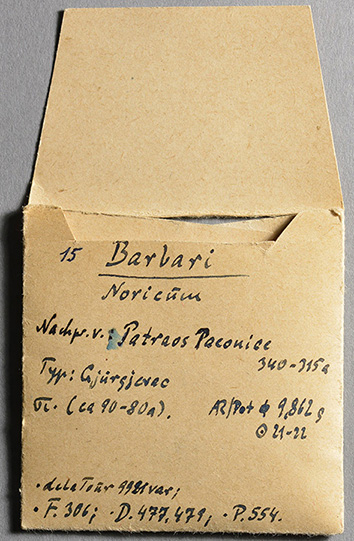 15 Barbari
Noricum
Nachpr. v.: Patraos Paeoniae
340-315a
Typ: Gjurgjevac
(ca 90-80a). AR/Pot ϕ 9,862 g
⊙ 21-22
· de la Tour 9921 var;
· F. 306; · D. 477.479; · P. 554.